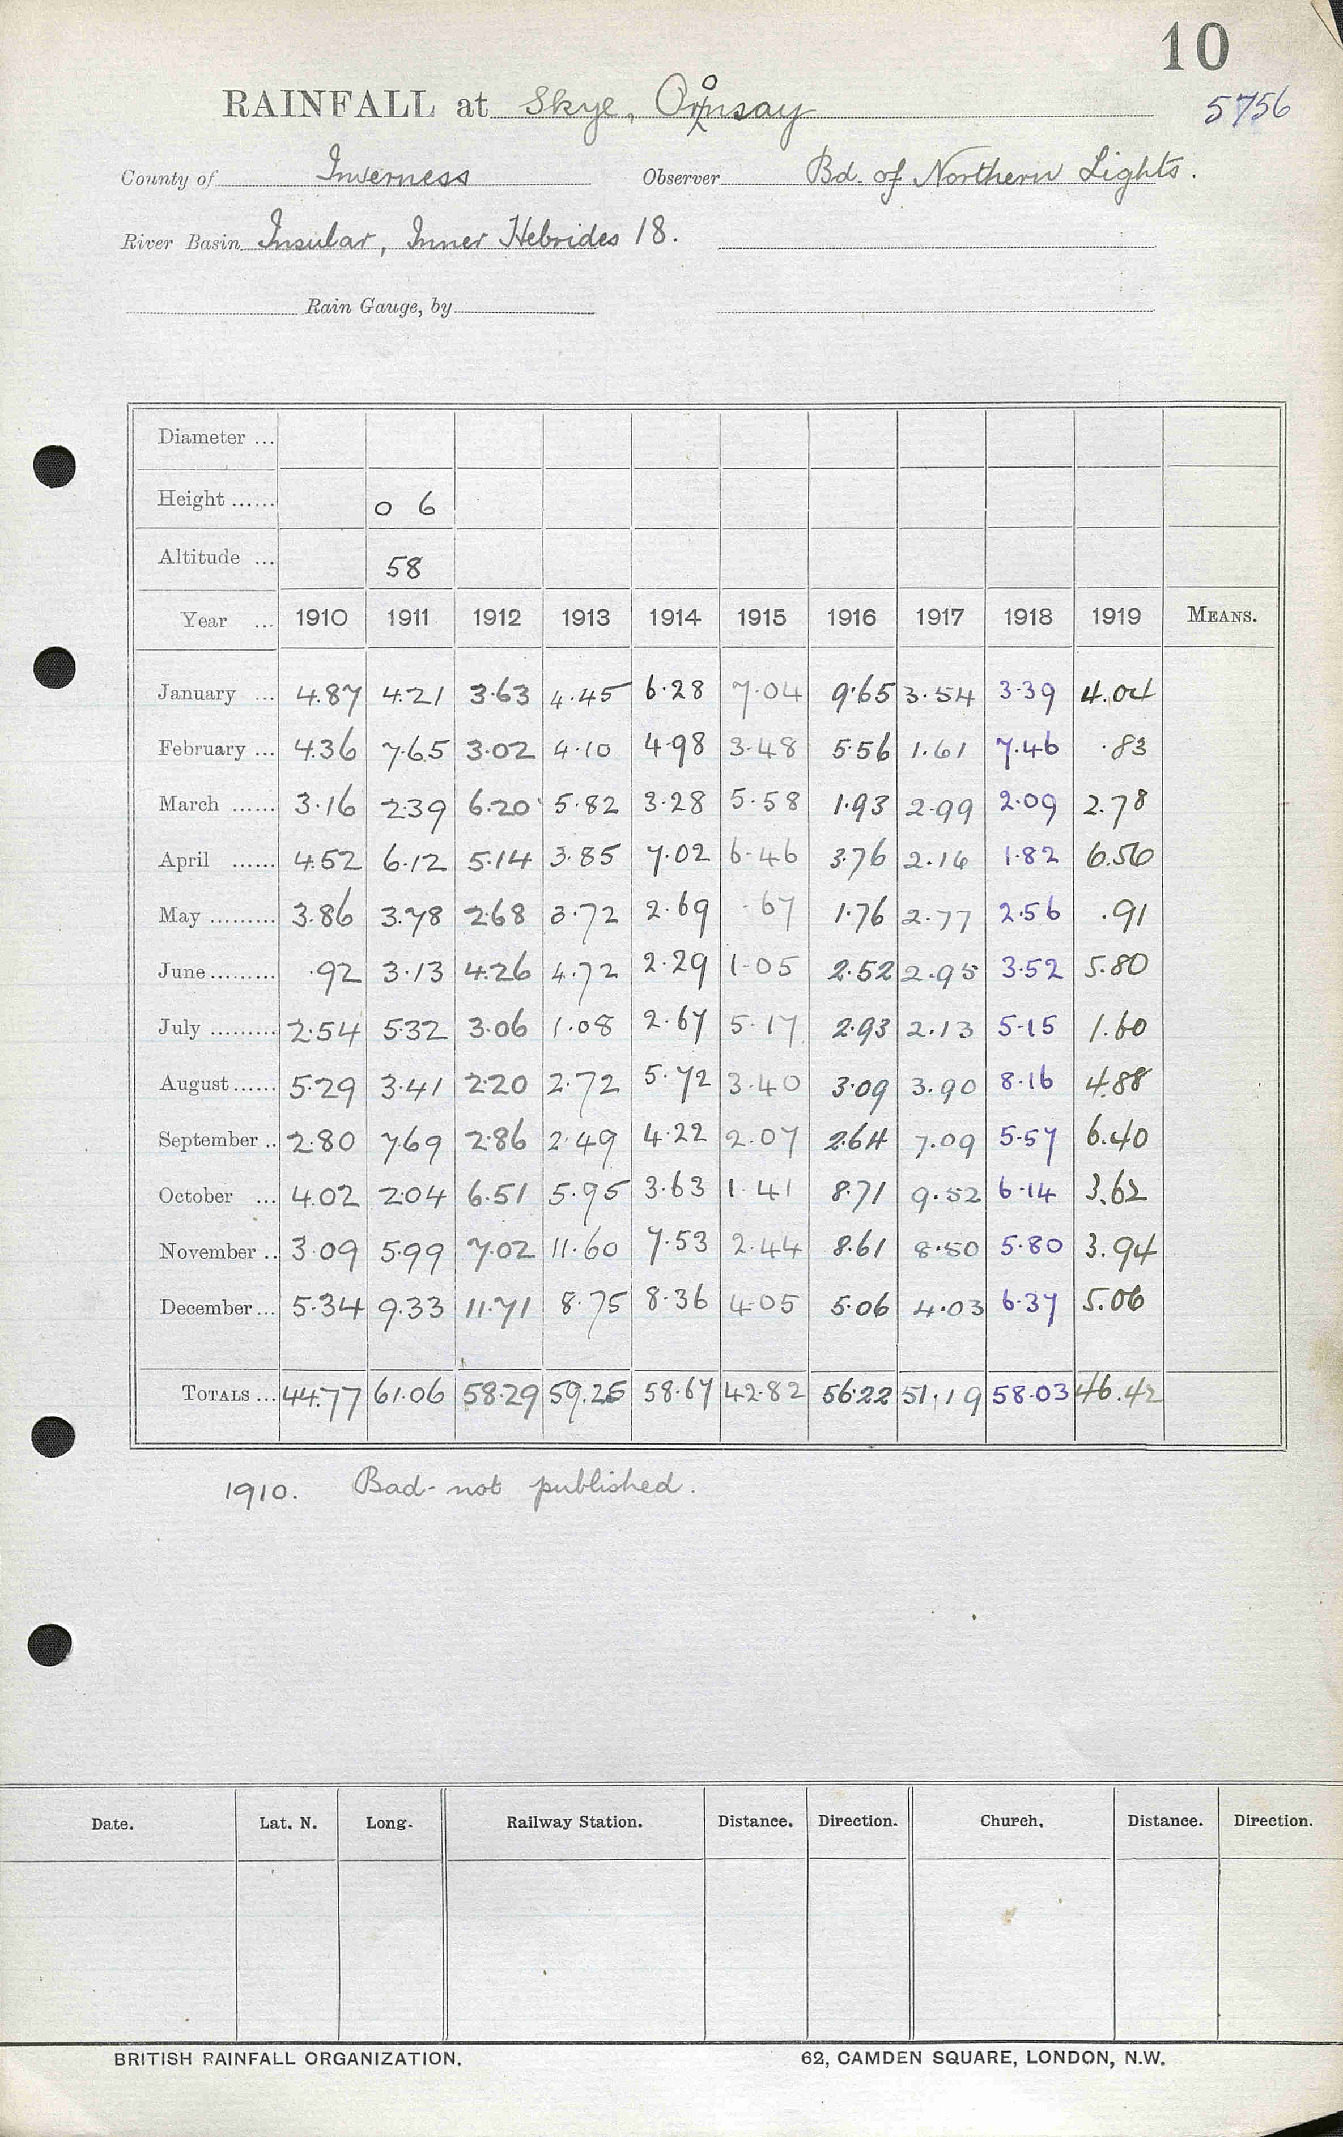 10
RAINFALL at Skye, Ornsay
5756
County of Inverness Observer Bd. of Northern Lights.
River Basin Insular, Inner Hebrides 18.
Rain Gauge, by
Diameter ...
Height ...... 0 6
Altitude ... 58
Year ... 1910 1911 1912 1913 1914 1915 1916 1917 1918 1919 MEANS.
January ... 4.87 4.21 3.63 4.45 6.28 7.04 9.65 3.54 3.39 4.04
February ... 4.36 7.65 3.02 4.10 4.98 3.48 5.56 1.61 7.46 .83
March ...... 3.16 2.39 6.20 5.82 3.28 5.58 1.93 2.99 2.09 2.78
April ...... 4.52 6.12 5.14 3.85 7.02 6.46 3.76 2.16 1.82 6.56
May ......... 3.86 3.78 2.68 3.72 2.69 .67 1.76 2.77 2.56 .91
June ......... .92 3.13 4.26 4.72 2.29 1.05 2.52 2.95 3.52 5.80
July ......... 2.54 5.32 3.06 1.08 2.67 5.17 2.93 2.13 5.15 1.60
August ...... 5.29 3.41 2.20 2.72 5.72 3.40 3.09 3.90 8.16 4.88
September .. 2.80 7.69 2.86 2.49 4.22 2.07 2.64 7.09 5.57 6.40
October ... 4.02 2.04 6.51 5.95 3.63 1.41 8.71 9.52 6.14 3.62
November .. 3.09 5.99 7.02 11.60 7.53 2.44 8.61 8.50 5.80 3.94
December ... 5.34 9.33 11.71 8.75 8.36 4.05 5.06 4.03 6.37 5.06
TOTALS ... 44.77 61.06 58.29 59.25 58.67 42.82 56.22 51.19 58.03 46.42
1910. Bad - not published.
Date. Lat. N. Long. Railway Station. Distance. Direction. Church. Distance. Direction.
BRITISH RAINFALL ORGANIZATION. 62, CAMDEN SQUARE, LONDON, N.W.